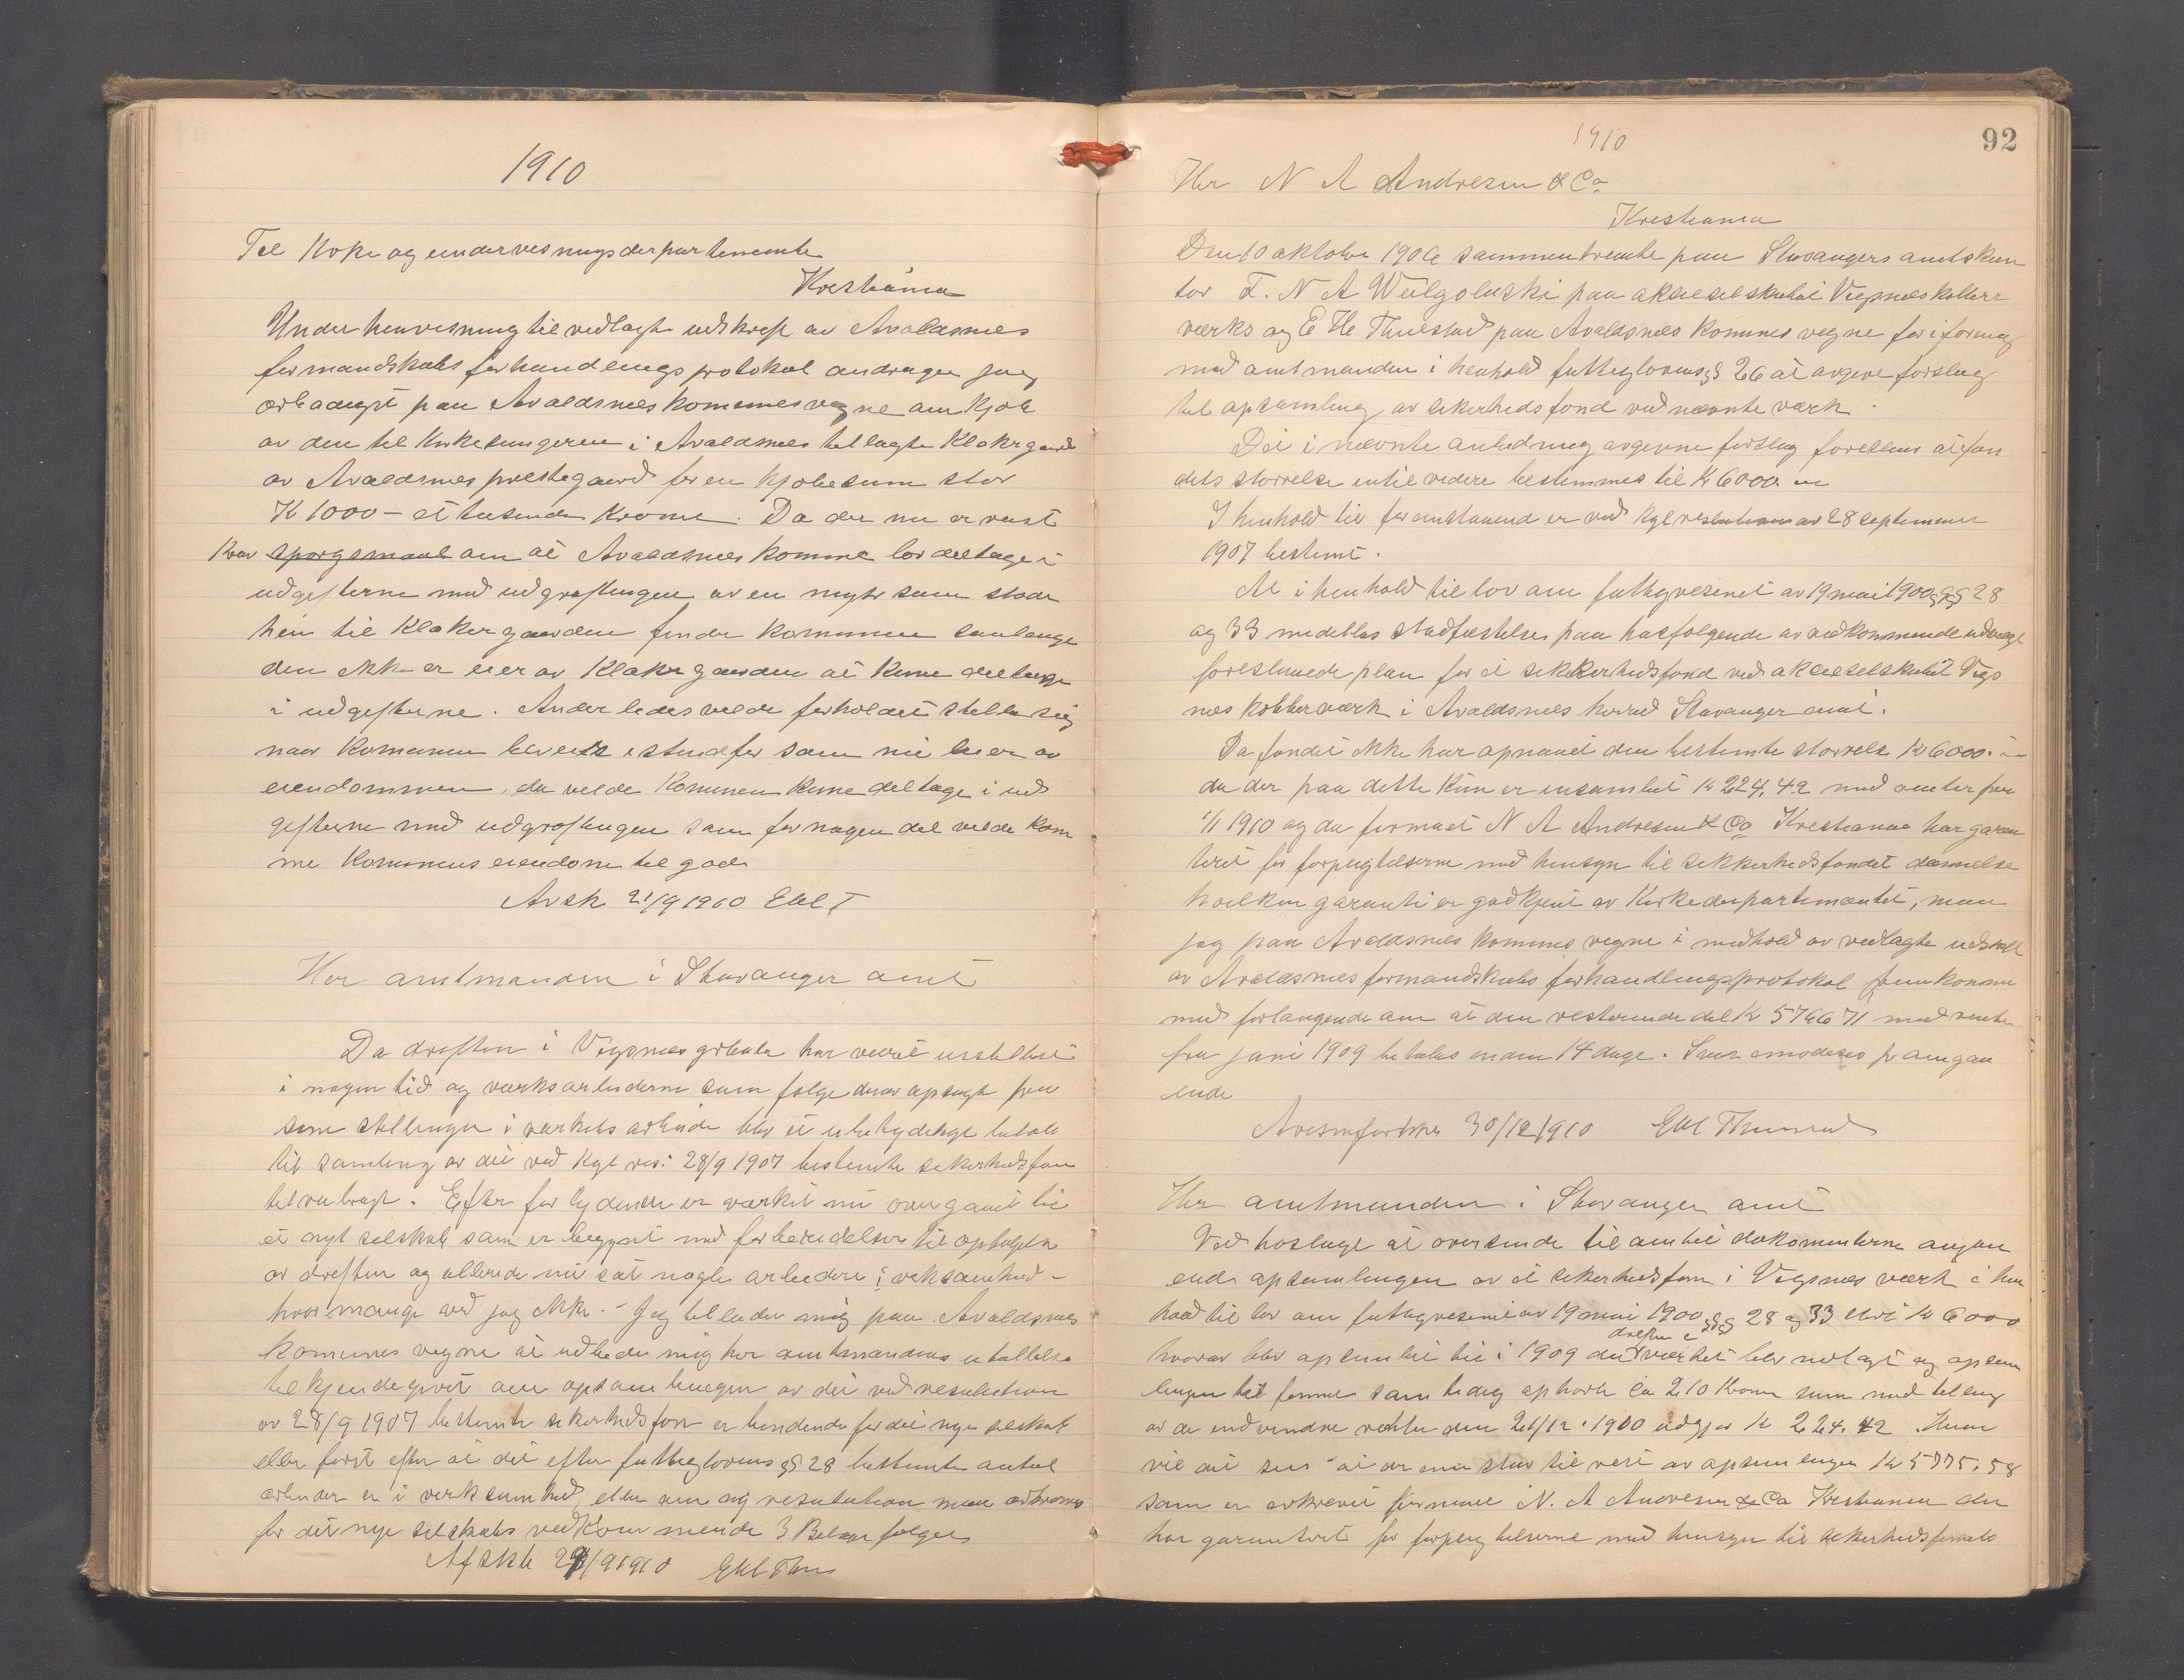 1910
Til Kirke og undervisningsdepartementet
Kristiania
Under henvisning til vedlagte utskrift av Avaldsnes
formandskabs forhandlings protokol andrager jeg
ærbødigst paa Avaldsnes kommunes vegne om kjøb
av den til Kirkesangeren i Avaldsnes tillagte Klokkergaard
av Avaldsnes prestegaard for en kjøbesum stor
K 1000 – et tusende Kroner. Da der nu er reist
Krav spørgsmaal om at Avaldsnes komme bør deltage i
udgifterne med udgrøftingen av en myr som støder
hen til Klokergaarden finder kommunen saalænge
den ikke er eier av Klokergaarden at kunne deltage
i udgifterne. Anderledes vilde forholdet stille sig
naar komunen blev eier istedenfor som nu leier av
eiendommen, da vilde Komunen kunne deltage i ud
gifterne med udgrøftingen som for nogen del vilde kom
me Komunens eiendom til gode
Avsk 21/9 1910 EHT
Her amtmanden i Stavanger amt
Da driften i Vigsnes grube har været indstillet
i nogen tid og verksarbeiderne som følge derav opsagt fra
sine stillinger i verkets arbeide blev et ubetydeligt beløb
til samling av det ved Kgl res. 28/9 1907 bestemte sikerhedsfon
tilveibragt. Efter forlydende er verket nu overgaaet til
et nyt selskab som er begyndt med forberedelser til optagelse
av driften og allerede nu sat nogle arbeidere i virksomhed –
hvor mange ved jeg ikke. – Jeg tillader mig paa Avaldsnes
Komunes vegne at udbede mig her amtmandens utallelse
tilkjendegivet om opsamlingen av det ved resolution
av 28/9 1907 bestemte sikerhedsfon er bindende for det nye selskab
eller først efter at det efter fattiglovens §§ 28 bestemte antal
arbeider er i virksomhed, eller om ny resolution maa
for det nye selskabs vedkommende 3 Bilage følger
Afskr 29/9 1910 EH Thu
92
1910
Her N A Andresen & Co
Kristiania
Den 10 oktober 1906 sammentraadte paa Stavangers amtskon
tor F. N A paa aktieselskabet Vigsnes kobber
værks og E H Thuestad paa Avaldsnes Komunes vegne for i forening
med amtmanden i henhold fattiglovens §§ 26 at avgive forslag
til opsamling av sikerheds fond ved nævnte værk.
Det i nævnte anledning avgivne forslag foreslaar at fon
dets størrelse intil videre bestemmes til K 6000 –
I henhold til foranstaaende er ved Kgl resolution av 28 september
1907 bestemt.
At i henhold til lov om fattigvesenet av 19 mai 1900 §§ 28
og 33 meddeles stadfæstelse paa hosfølgende av vedkommende udvalg
foreslaaede plan for et sikkerhedsfond ved aktieselskabet Vigs
nes kobberværk i Avaldsnes herred Stavanger amt.
Da fondet ikke har opnaaet den bestemte størrelse K 6000. –
da der paa dette kun er insamlet K 224,42 med renter per
1/1 1910 og da firmaet N A Andresen & Co Kristiania har garan
teret for forpligtelserne med hensyn til sikkerhedsfondet dannelse
hvilken garanti er godkjent av Kirkedepartementet, maa
jeg paa Avaldsnes komunes vegne i medhold av vedlagte udskrift
av Avaldsnes formandskabs forhandlingsprotokol fremkomme
med forlangende om at den resterende del K 5766 71 med rente
fra juni 1909 betales inden 14 dage. Svar imødeses pr omgaa
ende
30/12 1910 EH Thuestad
Her amtmanden i Stavanger amt
Ved hoslagt at oversende til amtet dokumenterne angaa
ende opsamlingen av et sikerhedsfon i Vigsnes værk i hen
hold til lov om fattigvesenet av 19 mai 1900 §§ 28 og 33 stort K 6000
hvorav blev opsamlet til i 1909 da driften i værket blev nedlagt og opsam
lingen til fonnet samtidig ophørte Ca 210 Kroner som med tillæg
av de indvundne renter den 26/12 . 1910 udgjør K 224.42. Herav
vil det sees at der enu staar til rest av opsamlingen K 5775,58
som er avkrevet firmaet N. A Andresen & Co Kristiania der
har garanteret for forpligtelserne med hensyn til sikerhedsfonnets